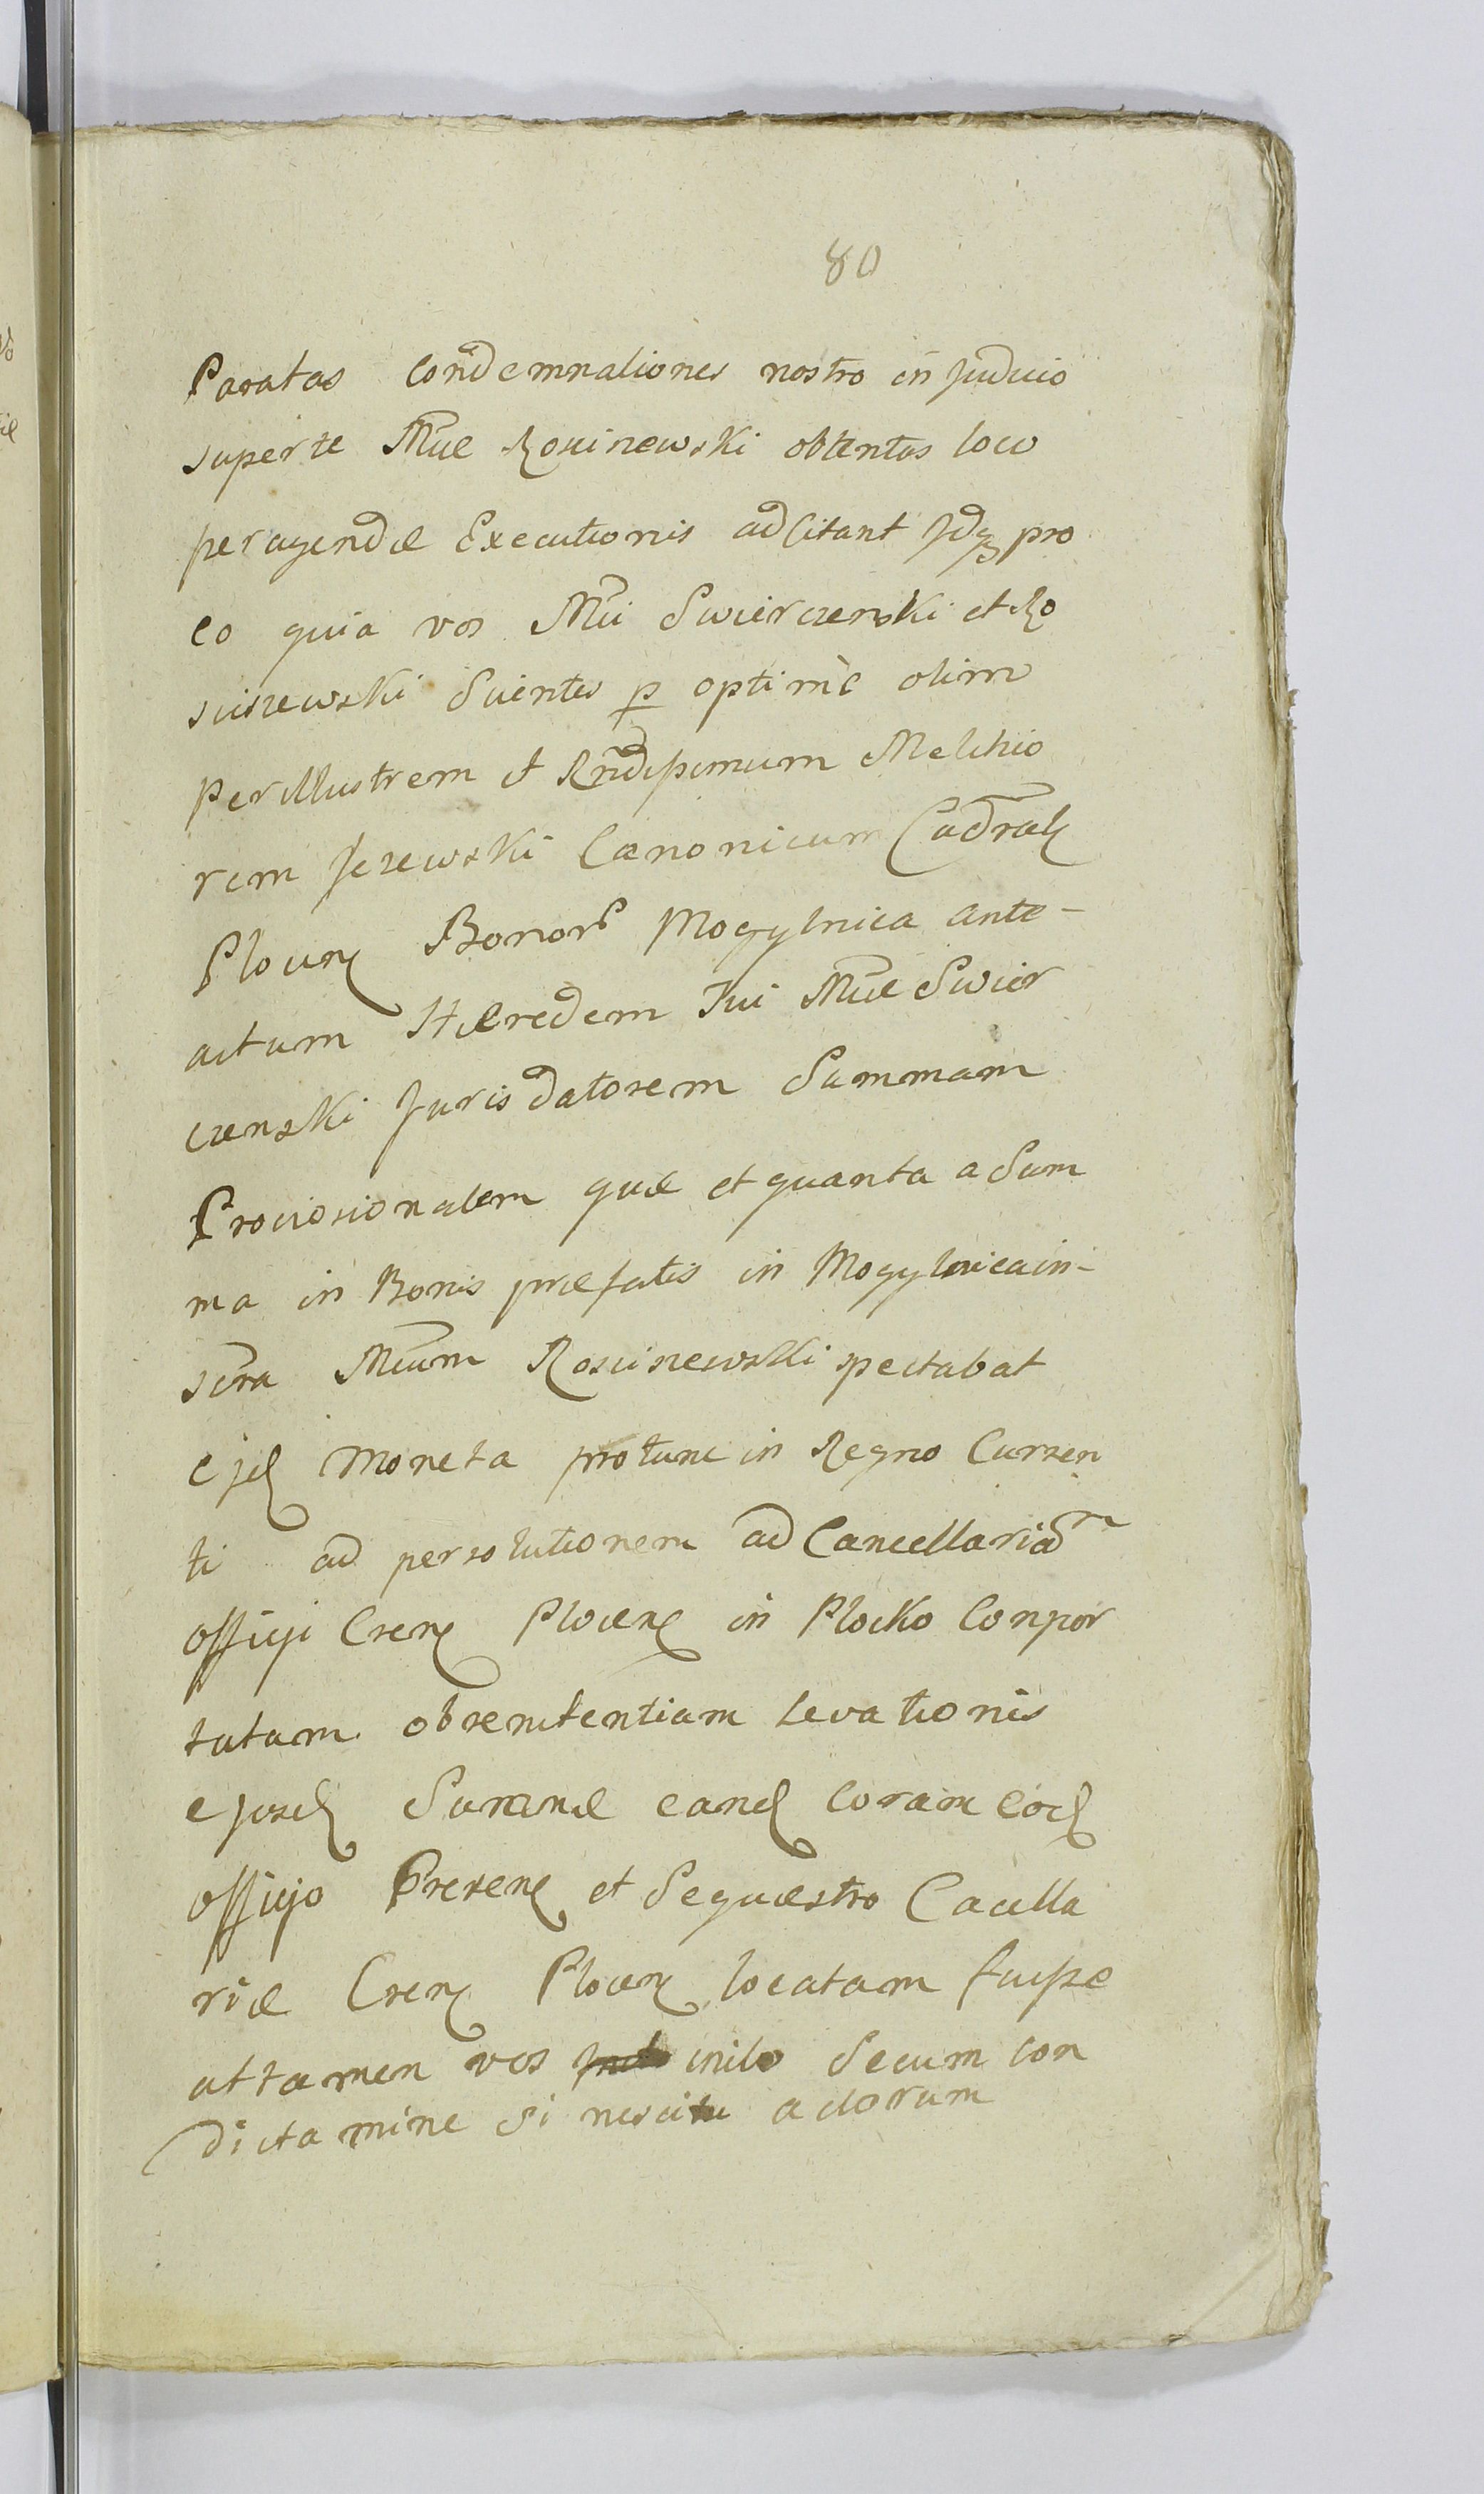 80
Paratas Condemnationes nostro in Judicio
super te Mce Rosciszewski obtentas loco
peragendæ Executionis adCitant Jdq pro
eo quia vos Mci Swierczenski et Ro
sciszewski Scientes p optimè olim
Perillustrem et Rndissimum Melchio
rem Jezewski Canonicum Cadralz
Plocen Bonorũ Mogylnica ante-
actum Hæredem Tui Mce Swier
czenski Juris datorem Summam
Provisionalem quæ et quanta a Sum
ma in Bonis præfatis in Mogylnica in-
scra Mcum Rosciszewski spectabat
ejd Moneta protunc in Regno Curren
ti ad persolutionem ad Cancellariam
officji Cren Plocen in Plocko Conpor
tatam obrenitentiam levationis
ejusd Summæ eand Coram eod
officjo Cren et Sequæstro Cacella
riæ Cren Plocen locatam fuisse
attamen vos inito Secum con
dictamine Si nescitu actorum